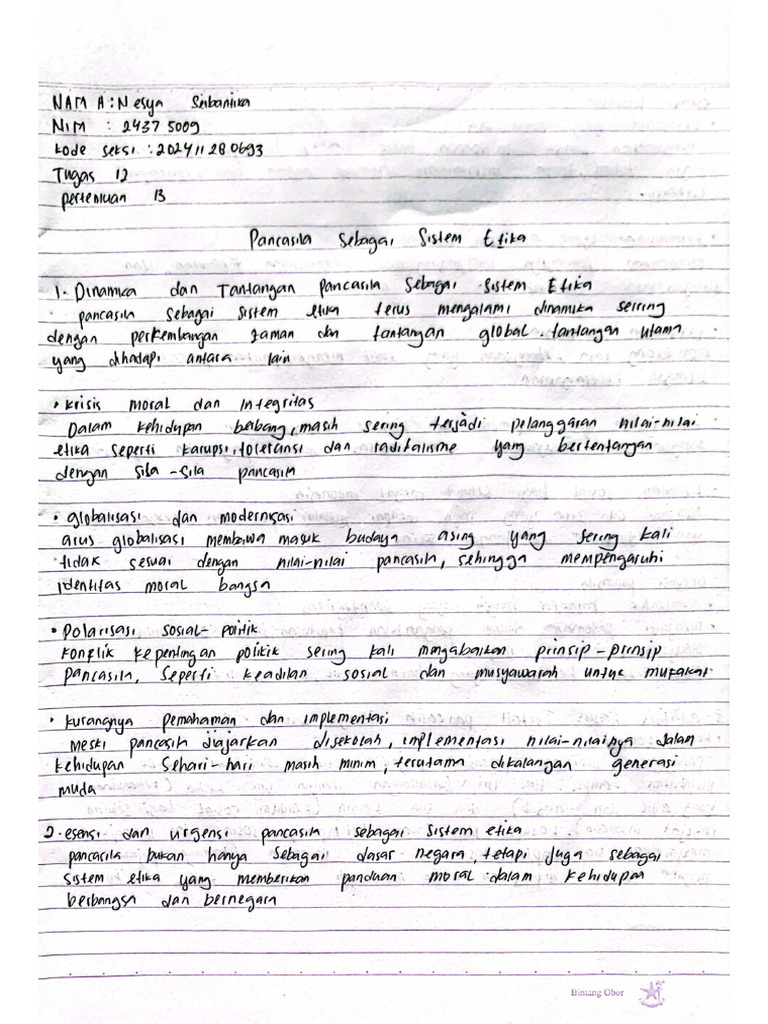 NAMA : Nesya Sribantika
NIM : 2437 5009
kode seksi : 20241128 0693
Tugas 12
pertemuan 13
Pancasila Sebagai Sistem Etika
1. Dinamika dan Tantangan pancasila Sebagai Sistem Etika
pancasila sebagai sistem etika terus mengalami dinamika seiring
dengan perkembangan zaman dan tantangan global. tantangan utama
yang dihadapi antara lain
• krisis moral dan Integritas
Dalam kehidupan berbang, masih sering terjadi pelanggaran nilai-nilai
etika seperti karupsi, toleransi dan radikalisme yang bertentangan
dengan sila-sila pancasila
• globalisasi dan modernisasi
arus globalisasi membawa masuk budaya asing yang sering kali
tidak sesuai dengan nilai-nilai pancasila, sehingga mempengaruhi
identitas moral bangsa
• Polarisasi sosial-politik
Konflik kepentingan politik sering kali mengabaikan prinsip-prinsip
pancasila, seperti keadilan sosial dan musyawarah untuk mufakat
• kurangnya pemahaman dan implementasi
Meski pancasila diajarkan disekolah, implementasi nilai-nilainya dalam
kehidupan sehari-hari masih minim, terutama dikalangan generasi
muda
2. esensi dan urgensi pancasila sebagai sistem etika
pancasila bukan hanya sebagai dasar negara, tetapi juga sebagai
sistem etika yang memberikan panduan moral dalam kehidupan
berbangsa dan bernegara
Bintang Obor